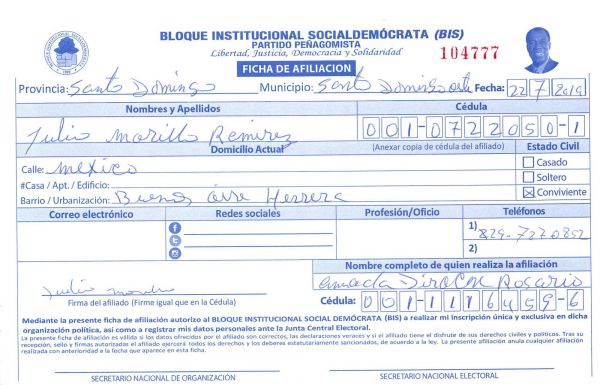 BLOQUE INSTITUCIONAL SOCIALDEMÓCRATA (BIS)
PARTIDO PEÑAGOMISTA
Libertad, Justicia, Democracia y Solidaridad
104777
FICHA DE AFILIACION
Provincia: Santo Domingo Municipio: Santo Domingo este Fecha: 22 7 2019
Nombres y Apellidos Cédula
Julio Morillo Ramirez 001-0722050-1
Domicilio Actual (Anexar copia de cédula del afiliado) Estado Civil
Calle: Mexico Casado
#Casa / Apt. / Edificio: Soltero
Barrio / Urbanización: Buenos aire Herrera Conviviente
Correo electrónico Redes sociales Profesión/Oficio Teléfonos
1) 829-7370852
2)
Nombre completo de quien realiza la afiliación
Julio Morillo Rosario
Firma del afiliado (Firme igual que en la Cédula) Cédula: 001-1176459-6
Mediante la presente ficha de afiliación autorizo al BLOQUE INSTITUCIONAL SOCIAL DEMÓCRATA (BIS) a realizar mi inscripción única y exclusiva en dicha
organización política, así como a registrar mis datos personales ante la Junta Central Electoral.
La presente ficha de afiliación es válida si los datos ofrecidos por el afiliado son correctos, las declaraciones veraces y si el afiliado tiene el disfrute de sus derechos civiles y políticos. Tras su
recepción, sello y firmas autorizadas el afiliado ejercerá todos los derechos y los deberes estatutariamente sancionados, de acuerdo a la ley. La presente afiliación anula cualquier afiliación
realizada con anterioridad a la fecha que aparece en esta ficha.
SECRETARIO NACIONAL DE ORGANIZACIÓN SECRETARIO NACIONAL ELECTORAL